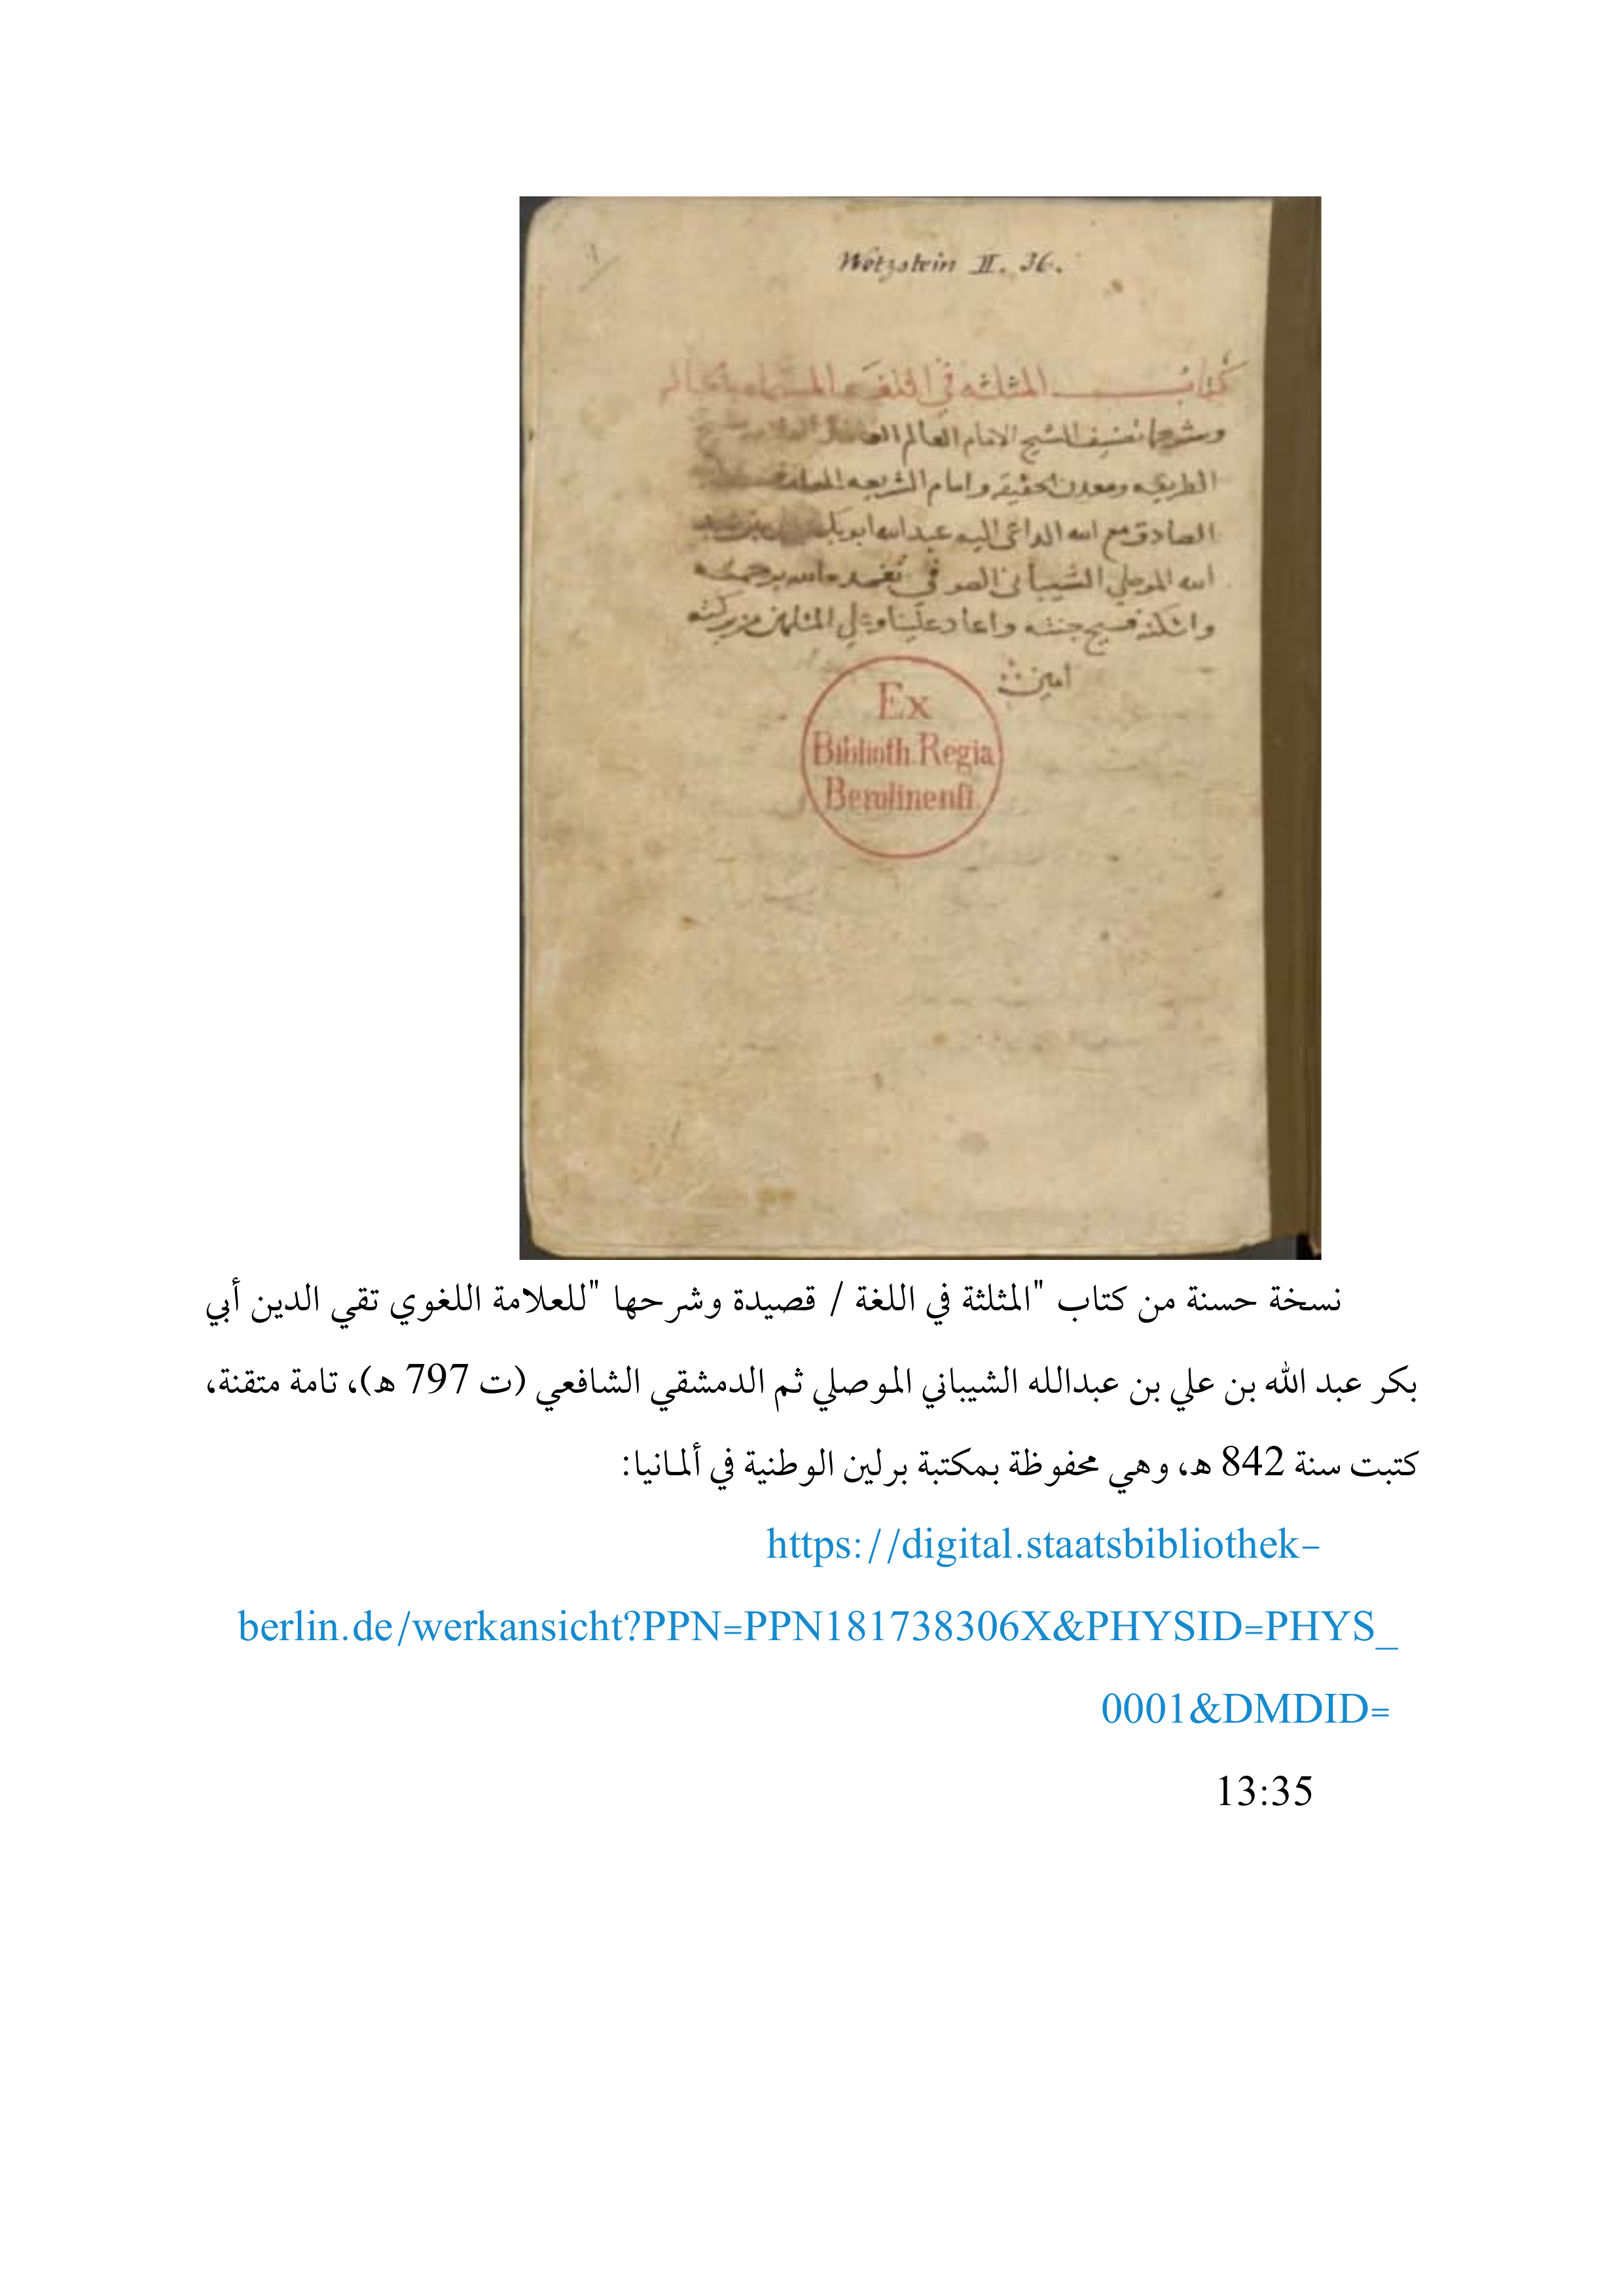 Wetzstein II. 36.
كتاب المثلثه في اللغه
وشرحها تصنيف الشيخ الامام العالم
الطريقه ومعدن الحقيقه وامام الشريعه
الصادق مع الله الداعي اليه عبد الله ابو بكر
الله الموصلي الشيباني الصوفي تغمده الله برحمته
واسكنه فسيح جنته واعاد علينا وعلي المسلمين من بركته
امين
Ex
Biblioth. Regia
Berolinensi.
نسخة حسنة من كتاب "المثلثة في اللغة / قصيدة وشرحها "للعلامة اللغوي تقي الدين أبي
بكر عبد الله بن علي بن عبدالله الشيباني الموصلي ثم الدمشقي الشافعي (ت 797 هـ)، تامة متقنة،
كتبت سنة 842 هـ، وهي محفوظة بمكتبة برلين الوطنية في ألمانيا:
https://digital.staatsbibliothek-
berlin.de/werkansicht?PPN=PPN181738306X&PHYSID=PHYS_
0001&DMDID=
13:35